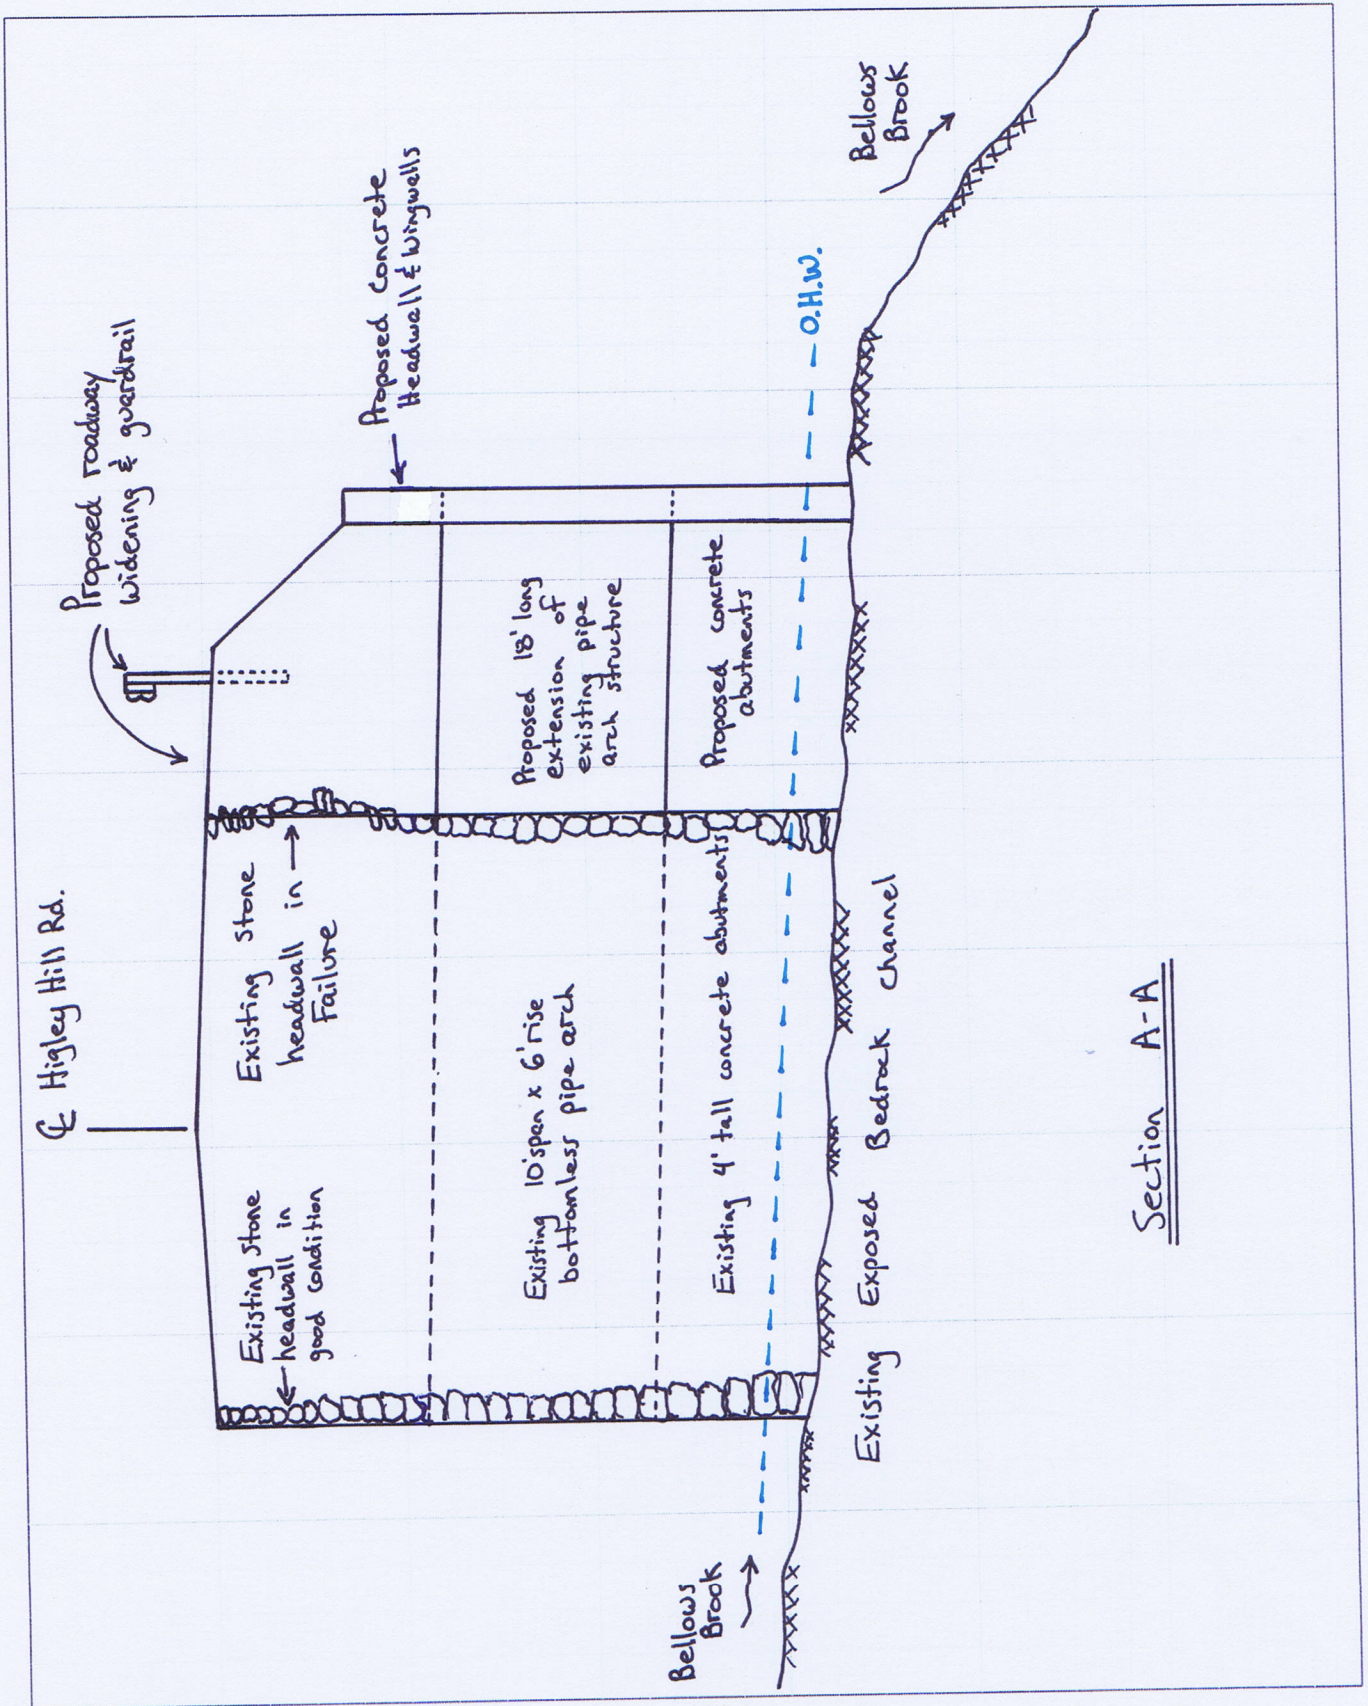 ₵ Higley Hill Rd.
Proposed roadway
Widening & guardrail
Proposed concrete
Headwall & Wingwalls
Existing stone
headwall in
good condition
Existing stone
headwall in
Failure
Existing 10' span x 6' rise
bottomless pipe arch
Proposed 18' long
extension of
existing pipe
arch structure
Existing 4' tall concrete abutments
Proposed concrete
abutments
O.H.W.
Bellows
Brook
Bellows
Brook
Existing Exposed Bedrock Channel
Section A-A